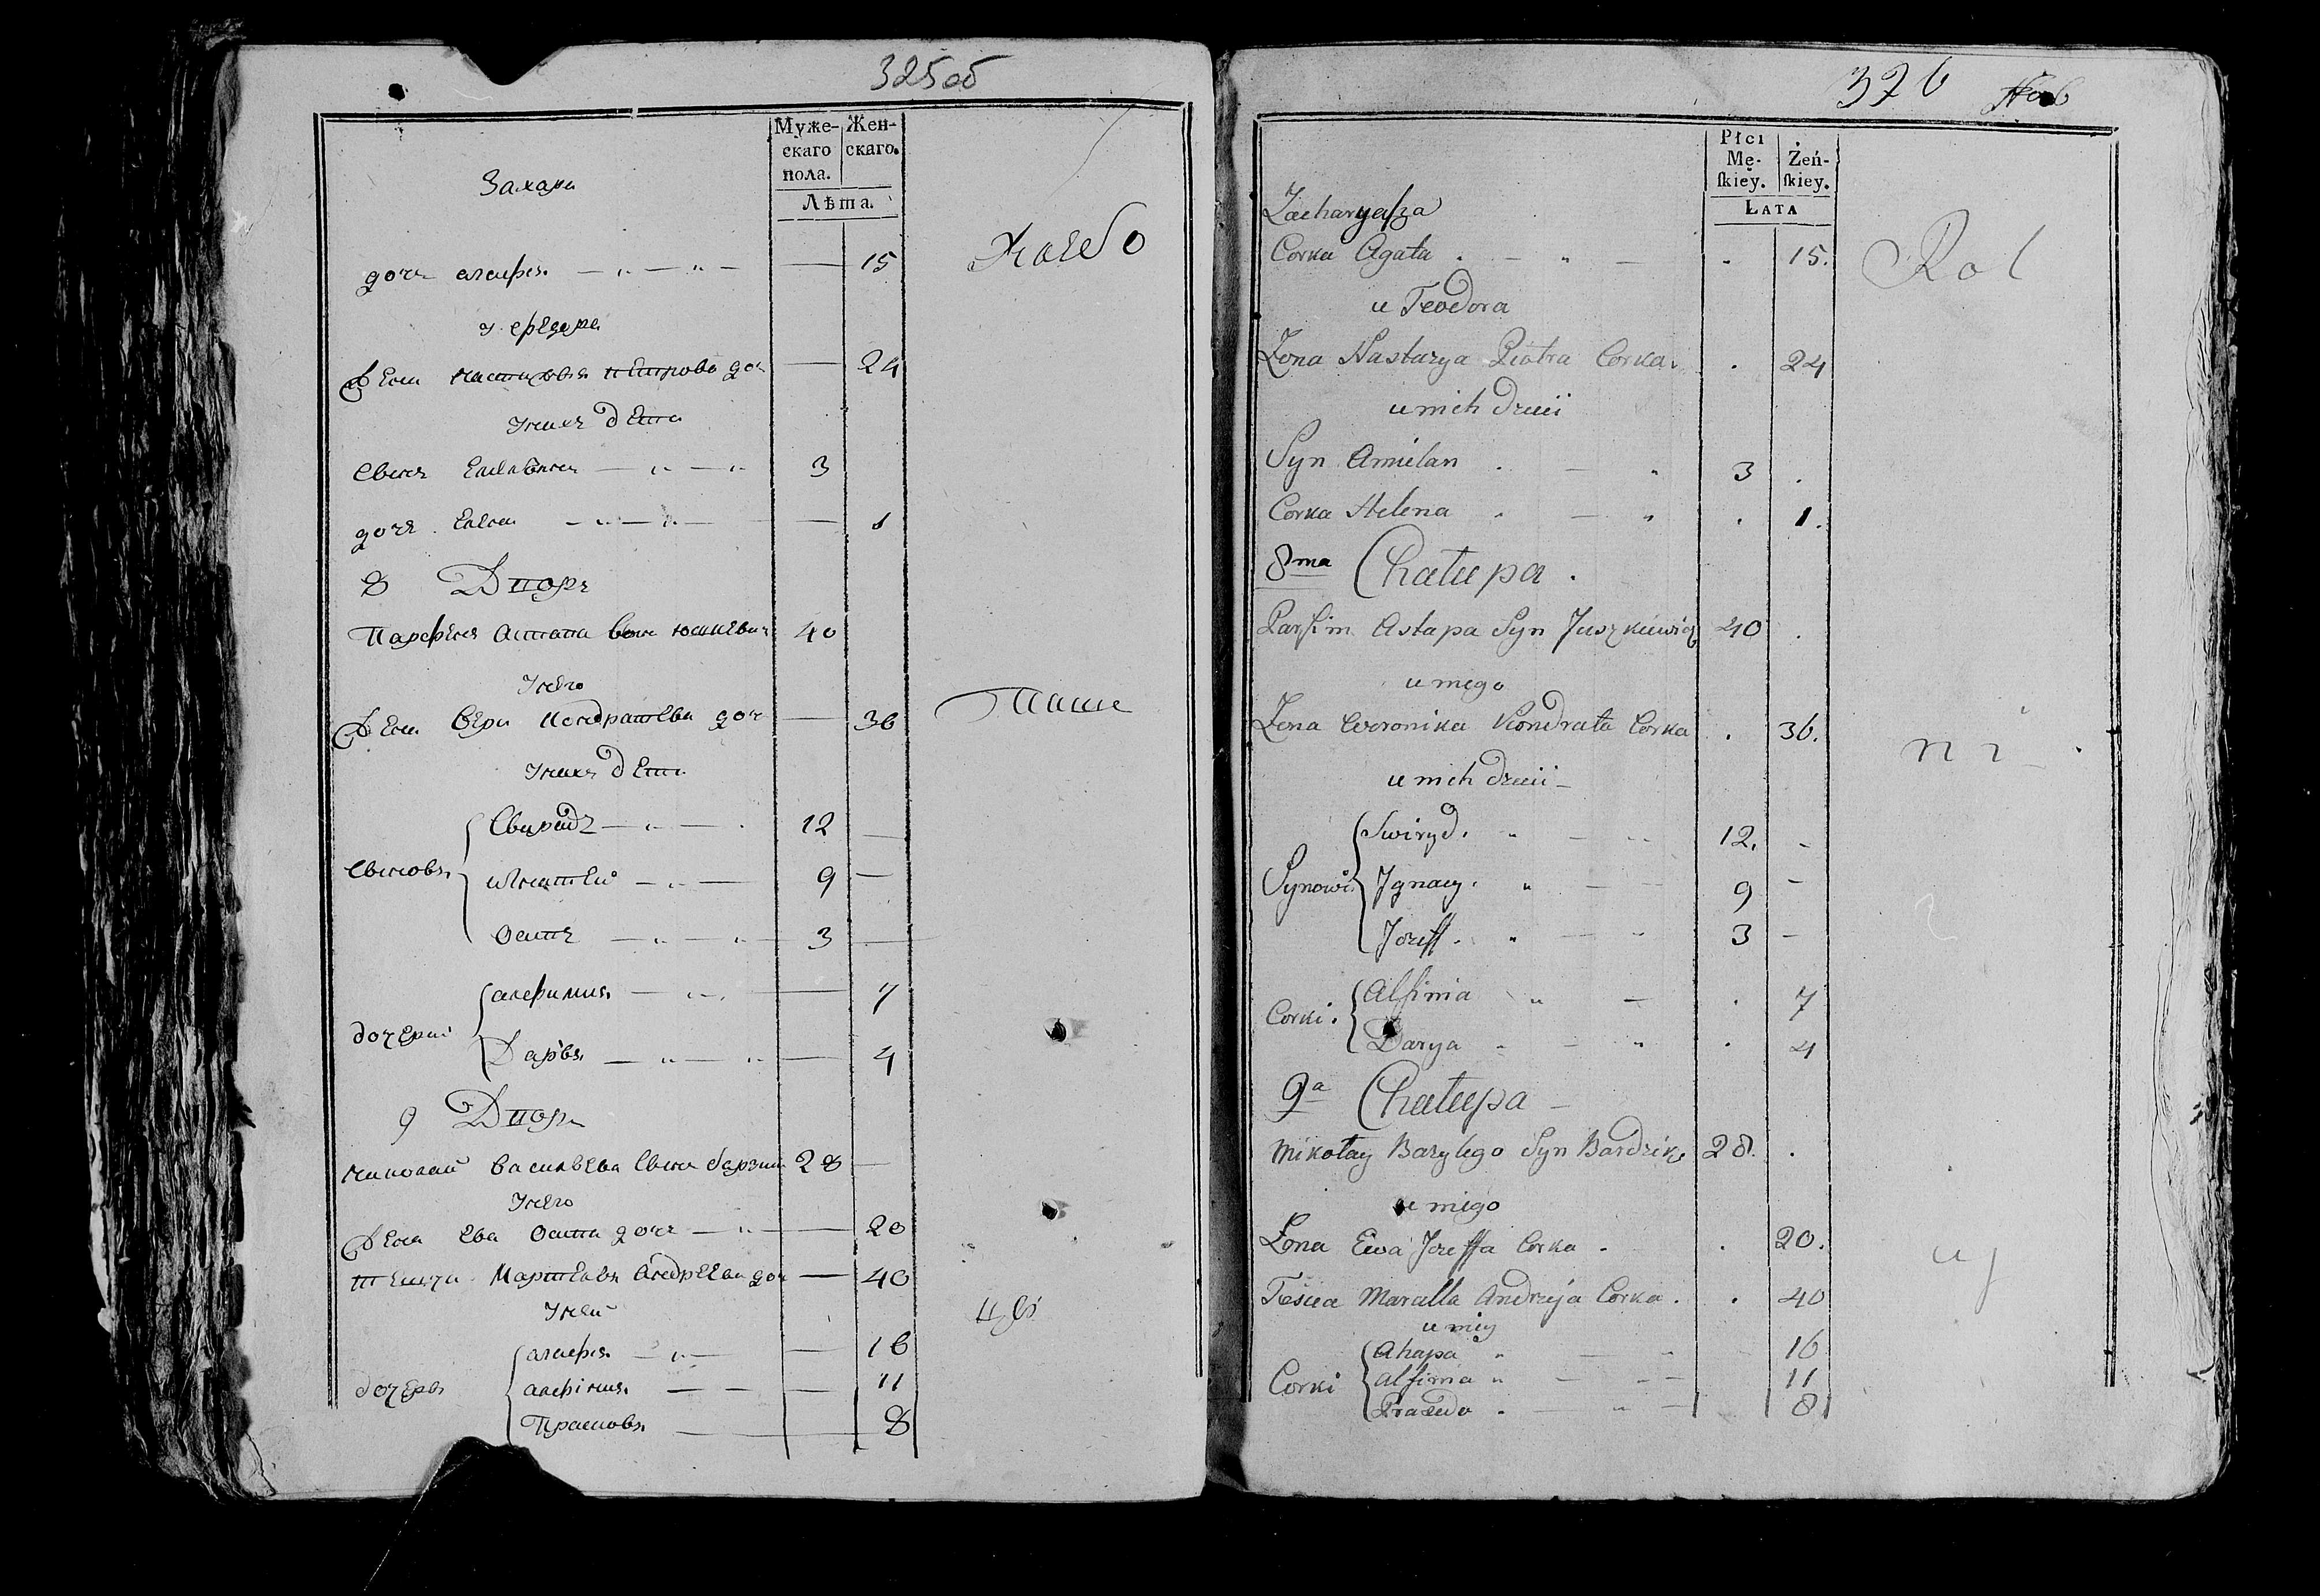 325об
Муже- Жен-
скаго скаго.
пола.
Лѣта.
Захара
дочь агафія — " — " — — 15
У ефедора
Жена настазья петрова доч — 24
Унихъ дети
Сынъ 3
дочь Елена — " — " — — 1
8 Дворъ
Парфенъ астапа сынъ юшкевич 40
Унего
Жена Вера кондратева доч — 36
Унихъ дети
Сыновья
Свиридъ — " — 12 —
игнатей — " — 9 —
Осипъ — " — " — 3 —
дочери
алфимия — " — — 7
Дарья — " — " — 4
9 Дворъ
николай васильева сынъ 28 —
Унего
Жена Ева Осипа дочь — " — 20
Андреева доч — 40
Уней
дочеръ
агафія — " — — 16
алфімія — — — 11
Прасковья — 8
376
Płci
Mę- Żeń-
ſkiey. ſkiey.
Łata
Zacharyaſza
Corka Agata . — " — . 15.
u Teodora
Zona Nastazya Piotra Corka . 24
unich dzieci
Syn Amilan . — " 3 .
Corka Helena " — " . 1.
8ma Chałupa .
Parfim Astapa Syn Juszkiewicz 40 .
u niego
Zona Weronika Kondrata Corka . 36.
u nich dzieci —
Synowie
Swiryd. " — " 12. -
Jgnacy. " — — 9 -
Jozeff. " — " 3 -
Corki.
Alfimia " — . 7
Darya " — " . 4
9a Chałupa —
Mikołay Bazylego Syn Bardzik 28. .
u niego
Zona Ewa Jozeffa Corka . . 20.
Teścia Maralla Andrzeja Corka . . 40
u niey
Corki
Ahapa " — " 16
alfimia " — — 11
Praxeda . — " — 8
Rol
ni